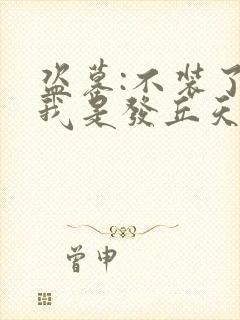 盗墓:不装了
我是發丘天
曾申